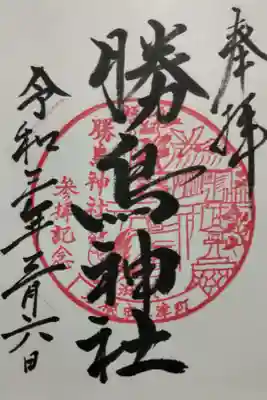 奉拝
勝鳥神社
令和三年三月六日
勝鳥神社
参拝記念